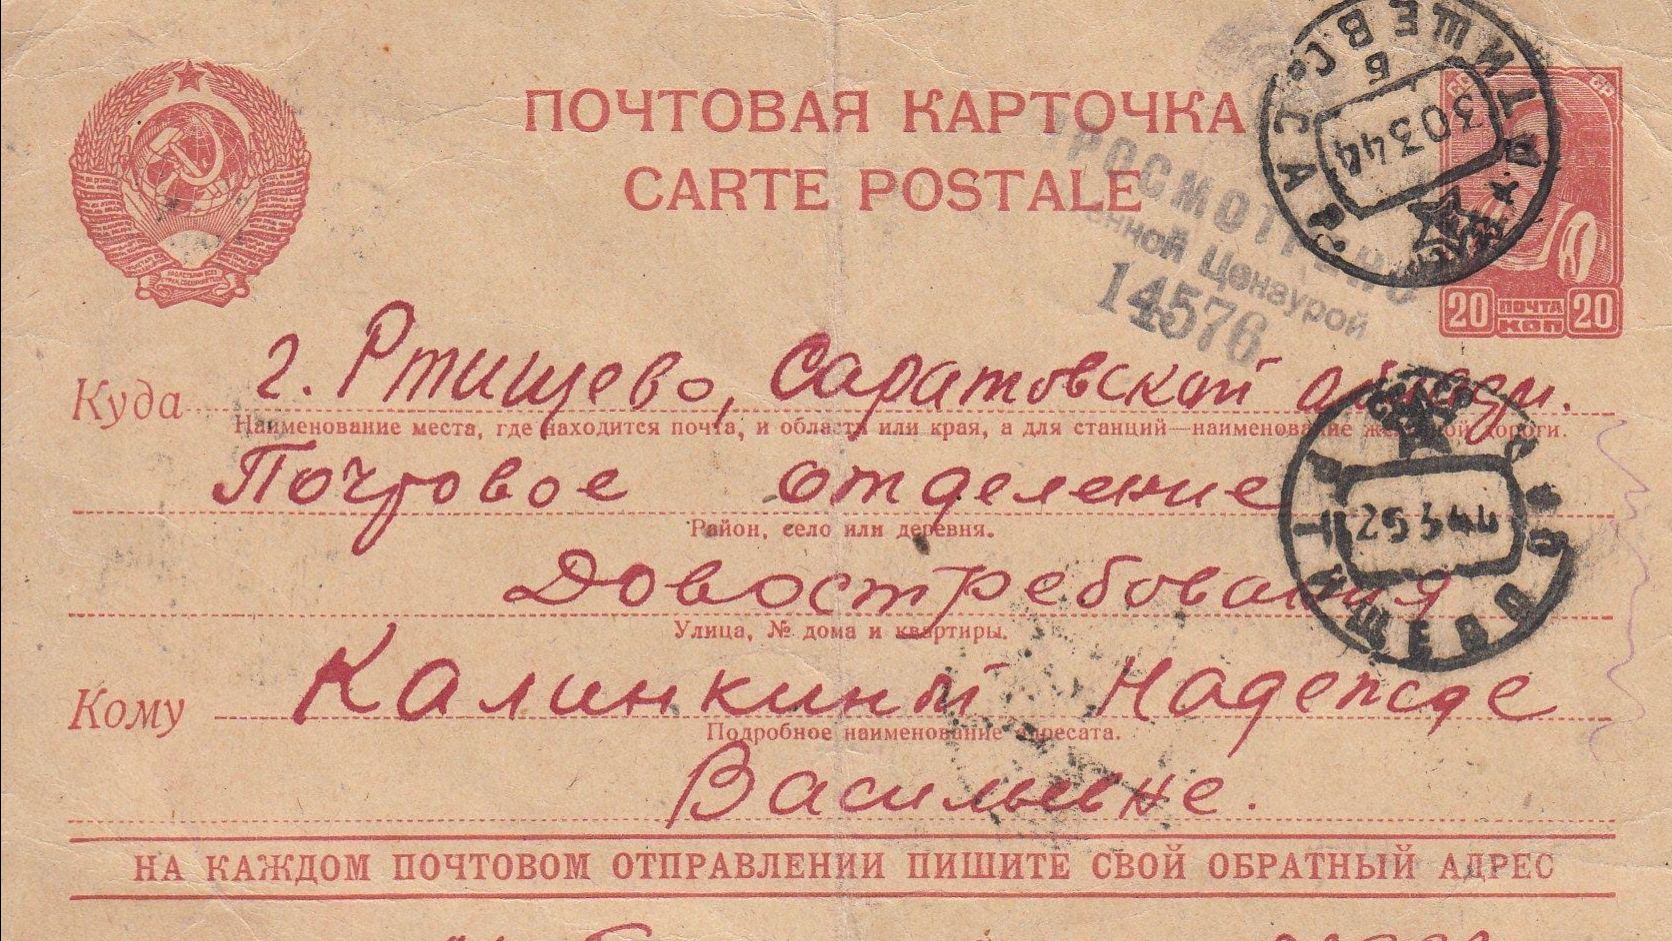 ПОЧТОВАЯ КАРТОЧКА
CARTE POSTALE
ПРОСМОТРЕНО
Военной Цензурой
14576
РТИЩЕВО САР.
Б
30344
20 ПОЧТА 20
КОП
Куда г. Ртищево, Саратовской области.
Наименование места, где находится почта, и области или края, а для станций—наименование железной дороги.
Почтовое отделение
Район, село или деревня.
РТИЩЕВО
26344
Довостребования
Улица, № дома и квартиры.
Кому Калинкиной Надежде
Подробное наименование адресата.
Васильевне.
НА КАЖДОМ ПОЧТОВОМ ОТПРАВЛЕНИИ ПИШИТЕ СВОЙ ОБРАТНЫЙ АДРЕС